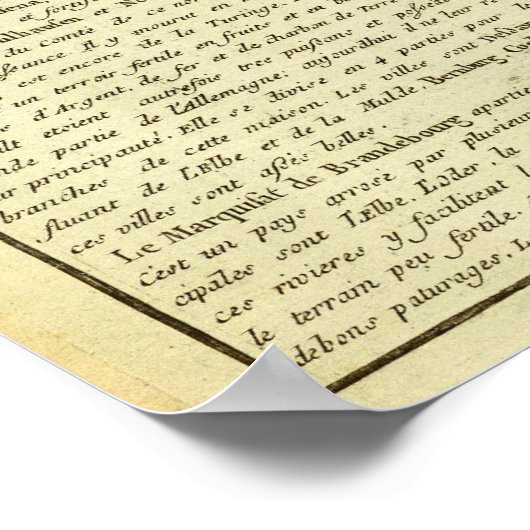 et fortifiée
et en
du comté de ce no
sance. Il y mourut en
est encore de la Turinge.
un terroir fertile en fruits et en b
s d'Argent, de fer et de charbon de Terre
lt etoient autrefois tres puissans et posséd
nde partie de l'Allemagne; aujourd'hui il ne leur re
ur principauté. Elle se divise en 4 parties pour l
branches de cette maison. Les villes sont
fluant de L'Elbe et de la Mulde, Bernburg,
ces villes sont assés belles.
Le Marquisat de Brandebourg apartie
c'est un pays arrosé par plusieur
cipales sont L'Elbe, L'oder, la
ces rivieres y facilitent l
le terrain peu fertile,
debons paturages. L